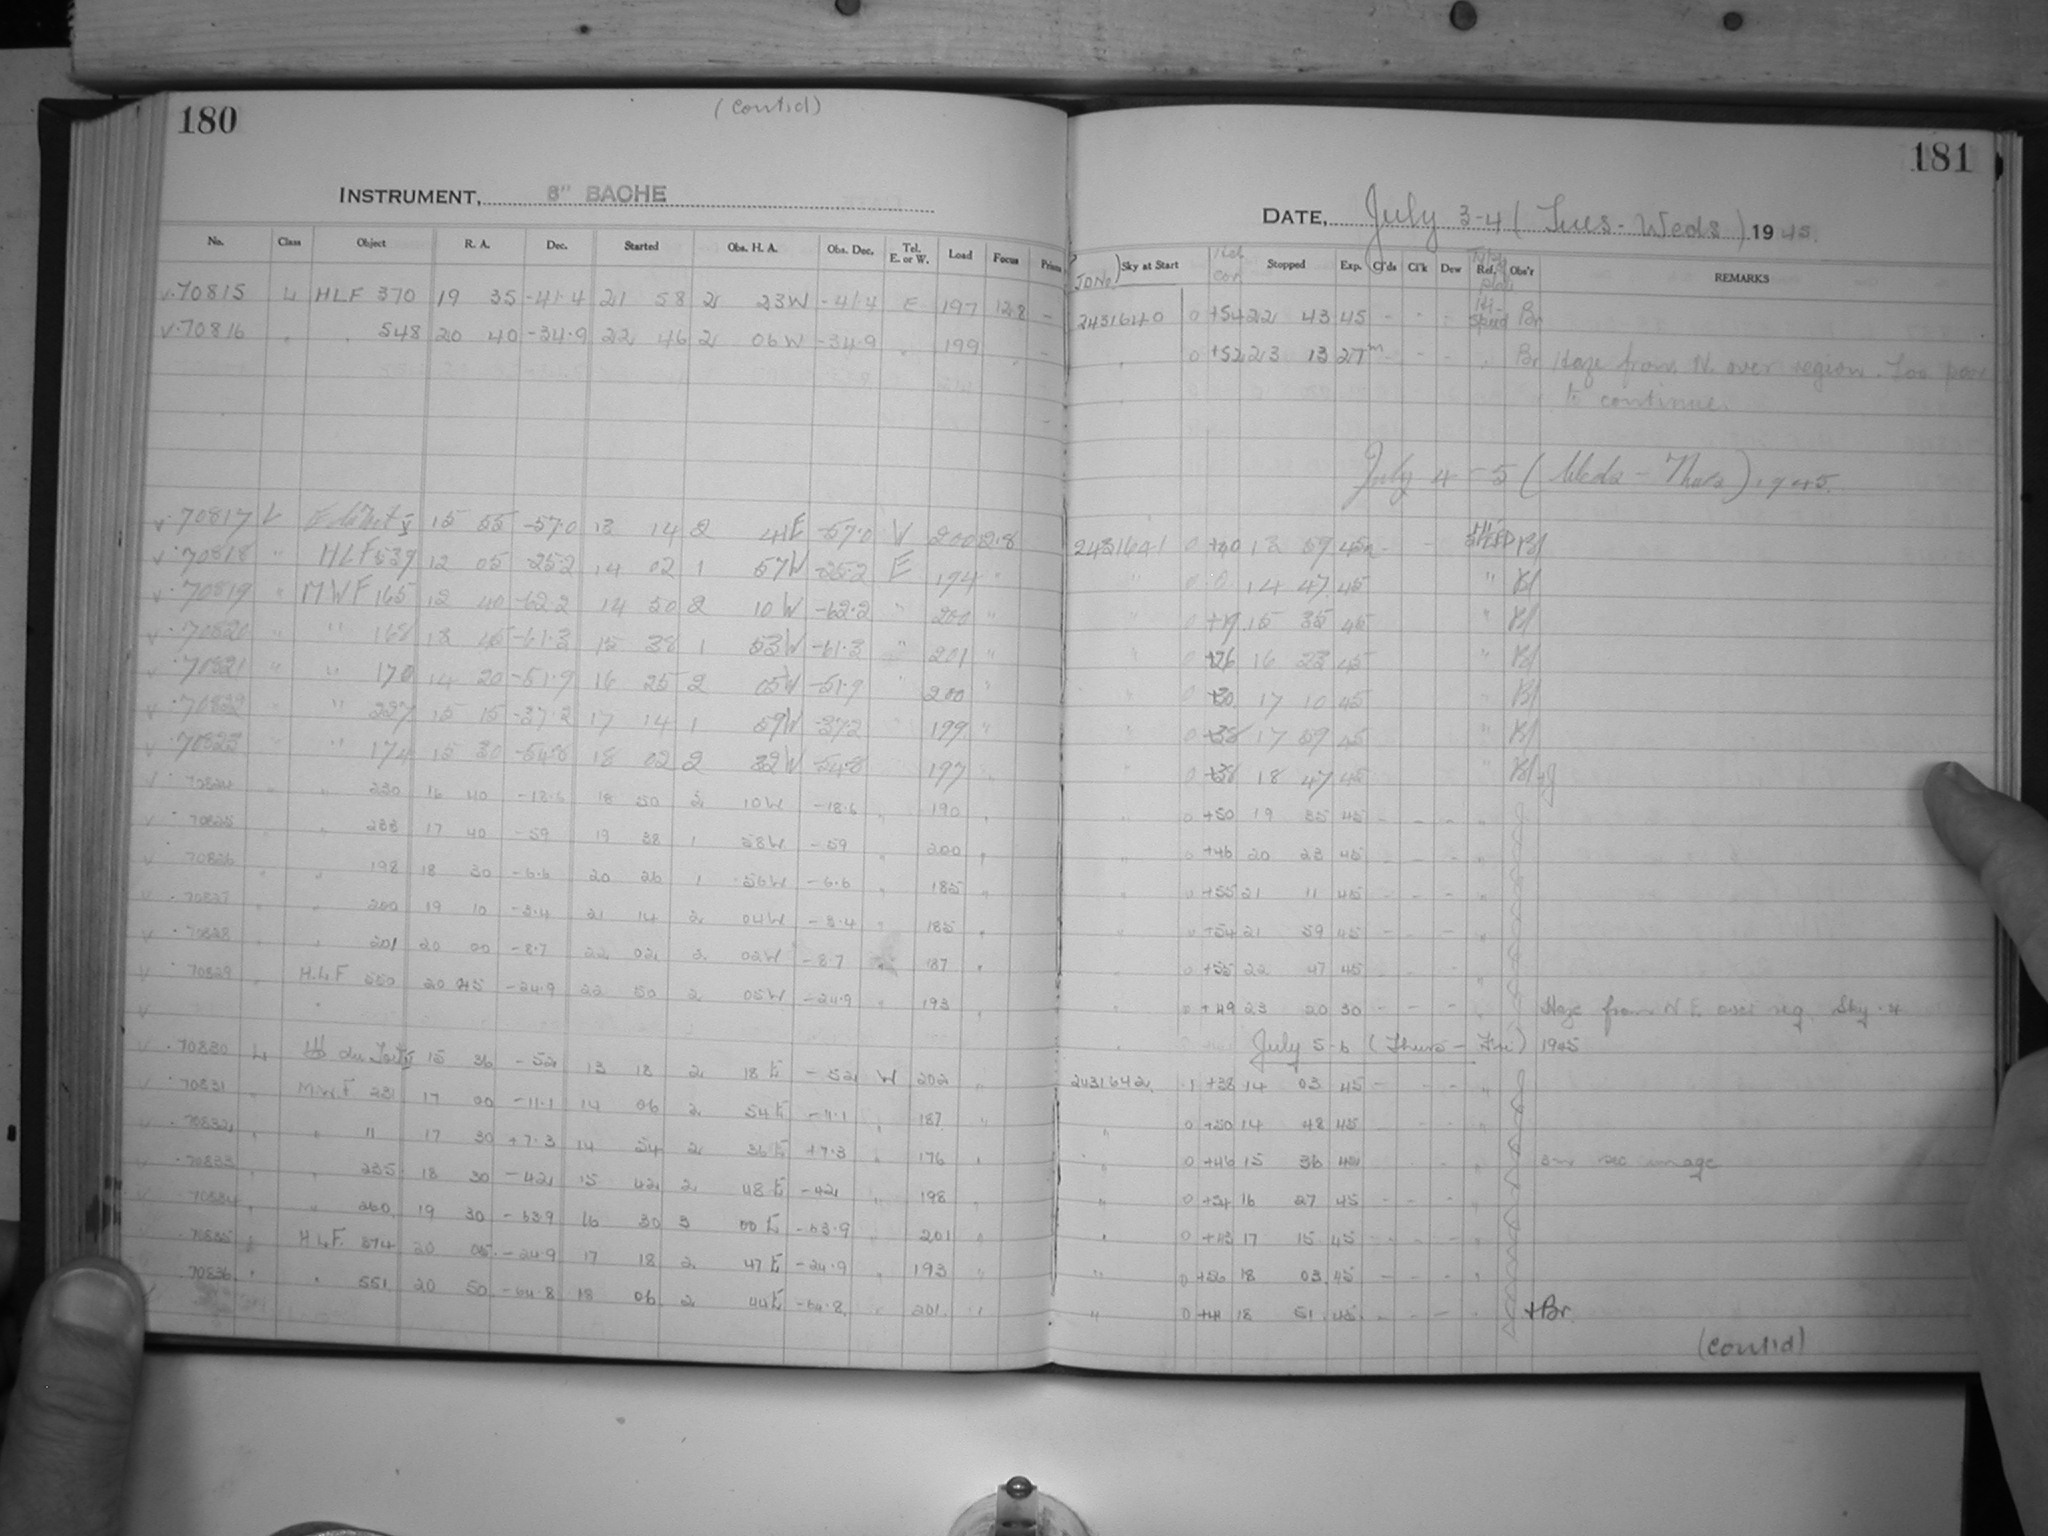 180
(contid)
INSTRUMENT, 8" BACHE
No. Class Object R. A. Dec. Started Obs. H. A. Obs. Dec. Tel. E. or W. Load Focus Prism
v.70815 L HLF 370 19 35 -41.4 21 58 2 23W -41.4 E 197 12.8 -
v.70816 " " 548 20 40 -34.9 22 46 2 06W -34.9 " 199 " -
v.70817 L 15 55 -57.0 13 14 2 41E -57.0 W 200 12.8
v.70818 " HLF 539 12 05 -25.2 14 02 1 57W -25.2 E 194 "
v.70819 " MWF 165 12 40 -62.2 14 50 2 10W -62.2 " 200 "
v.70820 " " 168 13 45 -61.3 15 38 1 53W -61.3 " 201 "
v.70821 " " 170 14 20 -51.9 16 25 2 05W -51.9 " 200 "
v.70822 " " 227 15 15 -37.2 17 14 1 59W -37.2 199 "
v.70823 " " 174 15 30 -54.8 18 02 2 32W -54.8 197 "
v.70824 " " 230 16 40 -18.6 18 50 2 10W -18.6 " 190 "
v.70825 " " 233 17 40 -59 19 38 1 58W -59 " 200 "
v.70826 " " 198 18 30 -6.6 20 26 1 56W -6.6 " 185 "
v.70827 " " 200 19 10 -3.4 21 14 2 04W -3.4 " 185 "
v.70828 " " 201 20 00 -8.7 22 02 2 02W -8.7 " 187 "
v.70829 " H.L.F 550 20 45 -24.9 22 50 2 05W -24.9 " 193 "
v.70830 L du Toit 15 36 -52 13 18 2 18E -52 W 202 "
v.70831 M.W.F 231 17 00 -11.1 14 06 2 54E -11.1 " 187 "
v.70832 " " 11 17 30 +7.3 14 54 2 36E +7.3 " 176 "
v.70833 " " 235 18 30 -42 15 42 2 48E -42 " 198 "
70834 " " 260 19 30 -63.9 16 30 3 00E -63.9 " 201 "
70835 " H.L.F. 574 20 05 -24.9 17 18 2 47E -24.9 " 193 "
70836 " " 551 20 50 -64.8 18 06 2 44E -64.8 " 201 "
181
DATE, July 3-4 (Tues - Weds) 1945.
JD No. Sky at Start Stopped Exp. Cl'ds Cl'k Dew Ref. Obs'r REMARKS
2431640 0 +54 22 43 45 - " - Hi-speed Br
" 0 +52 23 13 27m - - - " Br Haze from N. over region. Too poor
to continue.
July 4-5 (Weds - Thurs) 1945.
2431641 0 +40 13 59 45m - - HI SPEED Bl
" 0 0 14 47 45 " Bl
" 0 +19 15 35 45 " Bl
" 0 +26 16 23 45 " Bl
" 0 +30 17 10 45 " Bl
" 0 +38 17 59 45 " Bl
" 0 +38 18 47 45 " Bl+J
" 0 +50 19 35 45 - - - " J
" 0 +46 20 23 45 - - - "
" 0 +55 21 11 45 - - - "
" 0 +54 21 59 45 - - - "
" 0 +55 22 47 45 - - - "
" 0 +49 23 20 30 - - - " Haze from N E over reg. Sky .4
July 5-6 (Thurs - Fri) 1945
2431642 .1 +38 14 03 45 - - - "
" 0 +50 14 48 45 - - - "
" 0 +46 15 36 - - - " sec image
" 0 +34 16 27 45 - - - "
" 0 17 15 45 - - - "
" 0 +56 18 03 45 - - - "
" 0 +41 18 51 45 - - - " +Br.
(contid)